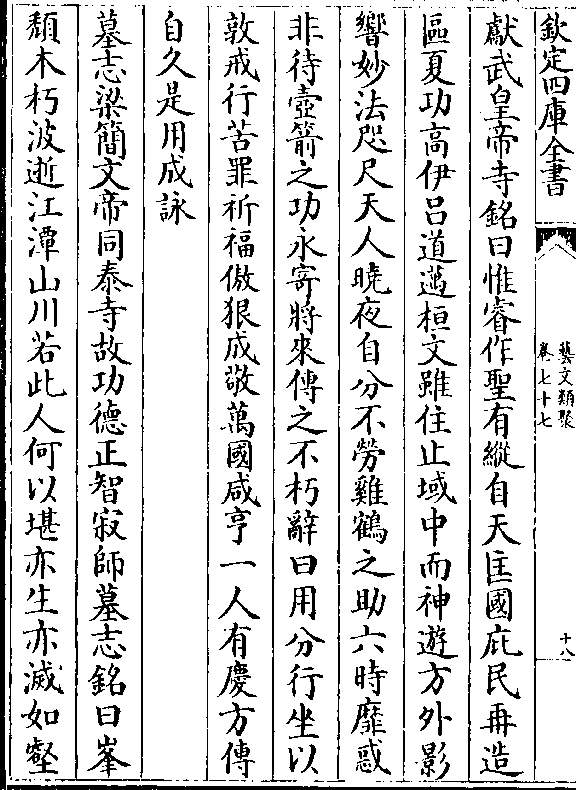 欽定四庫全書
藝文類聚
卷七十七
十八
獻武皇帝寺銘曰惟睿作聖有縱自天匡國庇民再造
區夏功高伊吕道邁桓文雖住止域中而神遊方外影
響妙法咫尺天人曉夜自分不勞雞鶴之助六時靡惑
非待壺箭之功永寄將來傳之不朽辭曰用分行坐以
敦戒行苦罪祈福傲狠成敬萬國咸亨一人有慶方傳
自久是用成詠
墓志梁簡文帝同泰寺故功德正智寂師墓志銘曰峯
頹木朽波逝江潭山川若此人何以堪亦生亦滅如壑